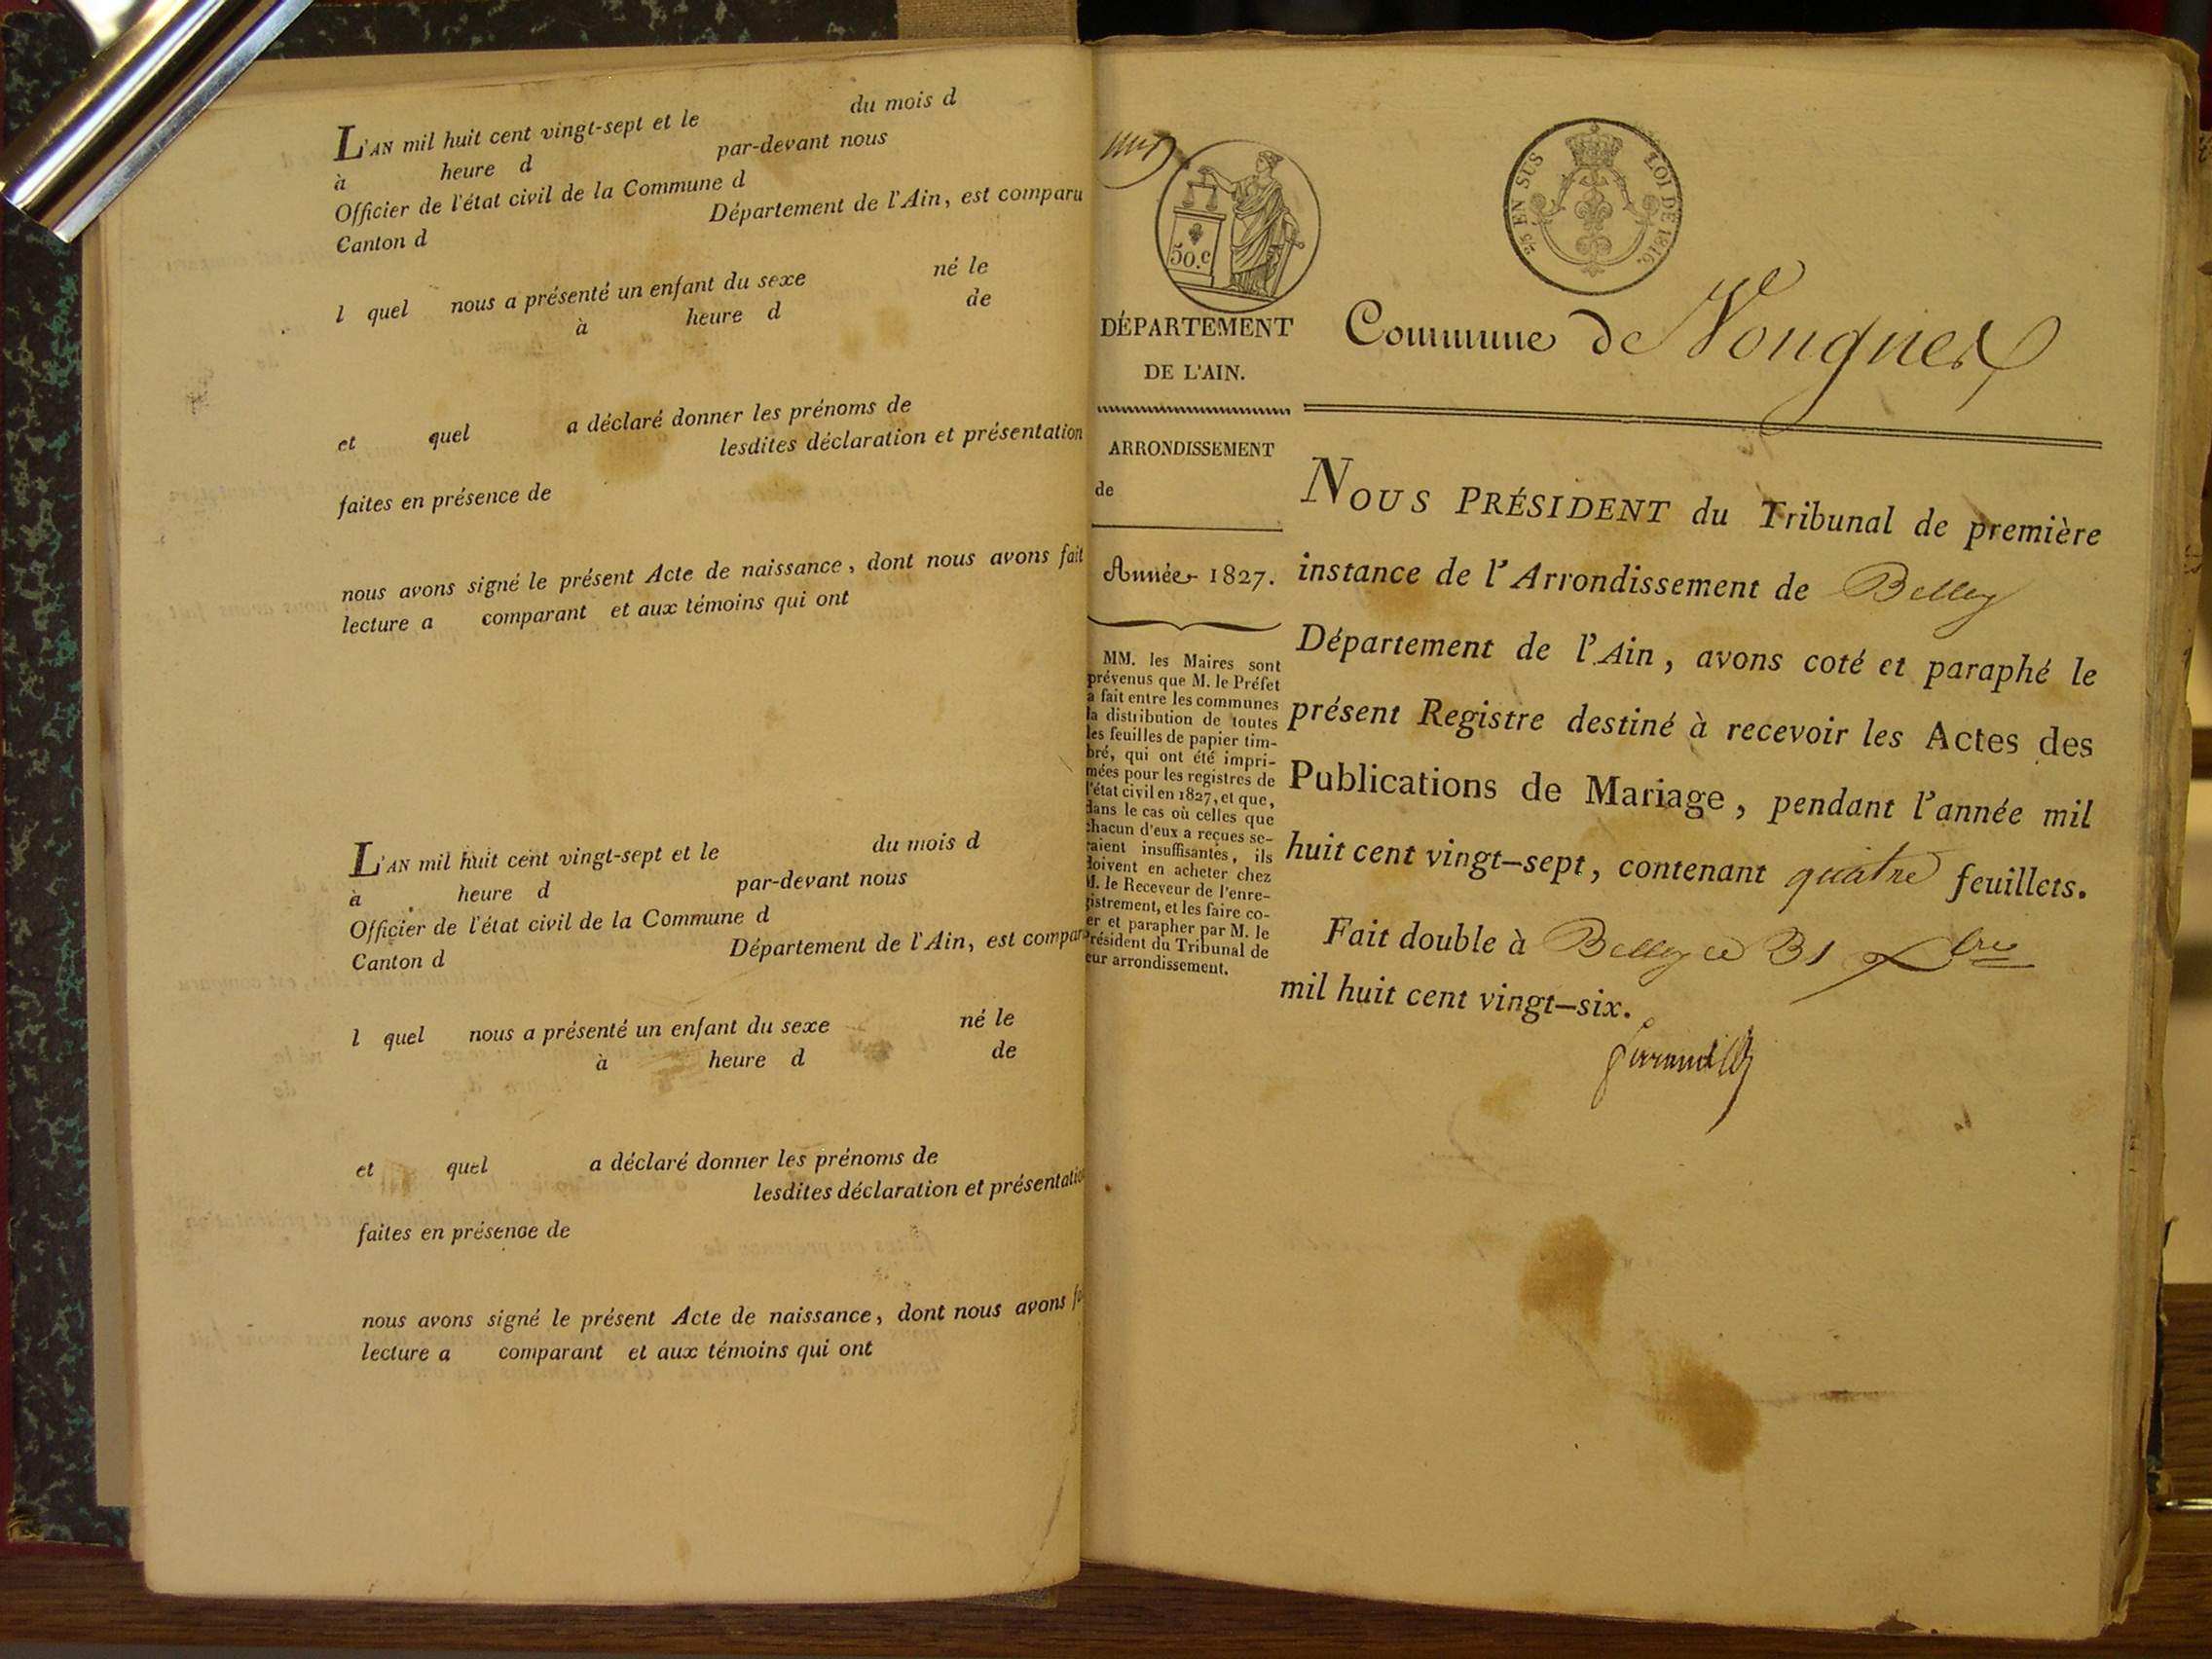 L'AN mil huit cent vingt-sept et le du mois d
à heure d par-devant nous
Officier de l'état civil de la Commune d
Canton d Département de l'Ain, est comparu
l quel nous a présenté un enfant du sexe né le
à heure d de
et quel a déclaré donner les prénoms de
lesdites déclaration et présentation
faites en présence de
nous avons signé le présent Acte de naissance, dont nous avons fait
lecture a comparant et aux témoins qui ont
L'AN mil huit cent vingt-sept et le du mois d
à heure d par-devant nous
Officier de l'état civil de la Commune d
Canton d Département de l'Ain, est compar
l quel nous a présenté un enfant du sexe né le
à heure d de
et quel a déclaré donner les prénoms de
lesdites déclaration et présentatio
faites en présence de
nous avons signé le présent Acte de naissance, dont nous avons f
lecture a comparant et aux témoins qui ont
50.c
25 EN SUS LOI DE 1816.
DÉPARTEMENT
DE L'AIN.
Commune de Vongnes
ARRONDISSEMENT
de
Année 1827.
MM. les Maires sont
prévenus que M. le Préfet
a fait entre les communes
la distribution de toutes
les feuilles de papier tim-
bré, qui ont été impri-
mées pour les registres de
l'état civil en 1827, et que,
dans le cas où celles que
chacun d'eux a reçues se-
raient insuffisantes, ils
doivent en acheter chez
M. le Receveur de l'enre-
gistrement, et les faire co-
er et parapher par M. le
Président du Tribunal de
eur arrondissement.
NOUS PRÉSIDENT du Tribunal de première
instance de l'Arrondissement de Belley
Département de l'Ain, avons coté et paraphé le
présent Registre destiné à recevoir les Actes des
Publications de Mariage, pendant l'année mil
huit cent vingt-sept, contenant quatre feuillets.
Fait double à Belley ce 31 Xbre
mil huit cent vingt-six.